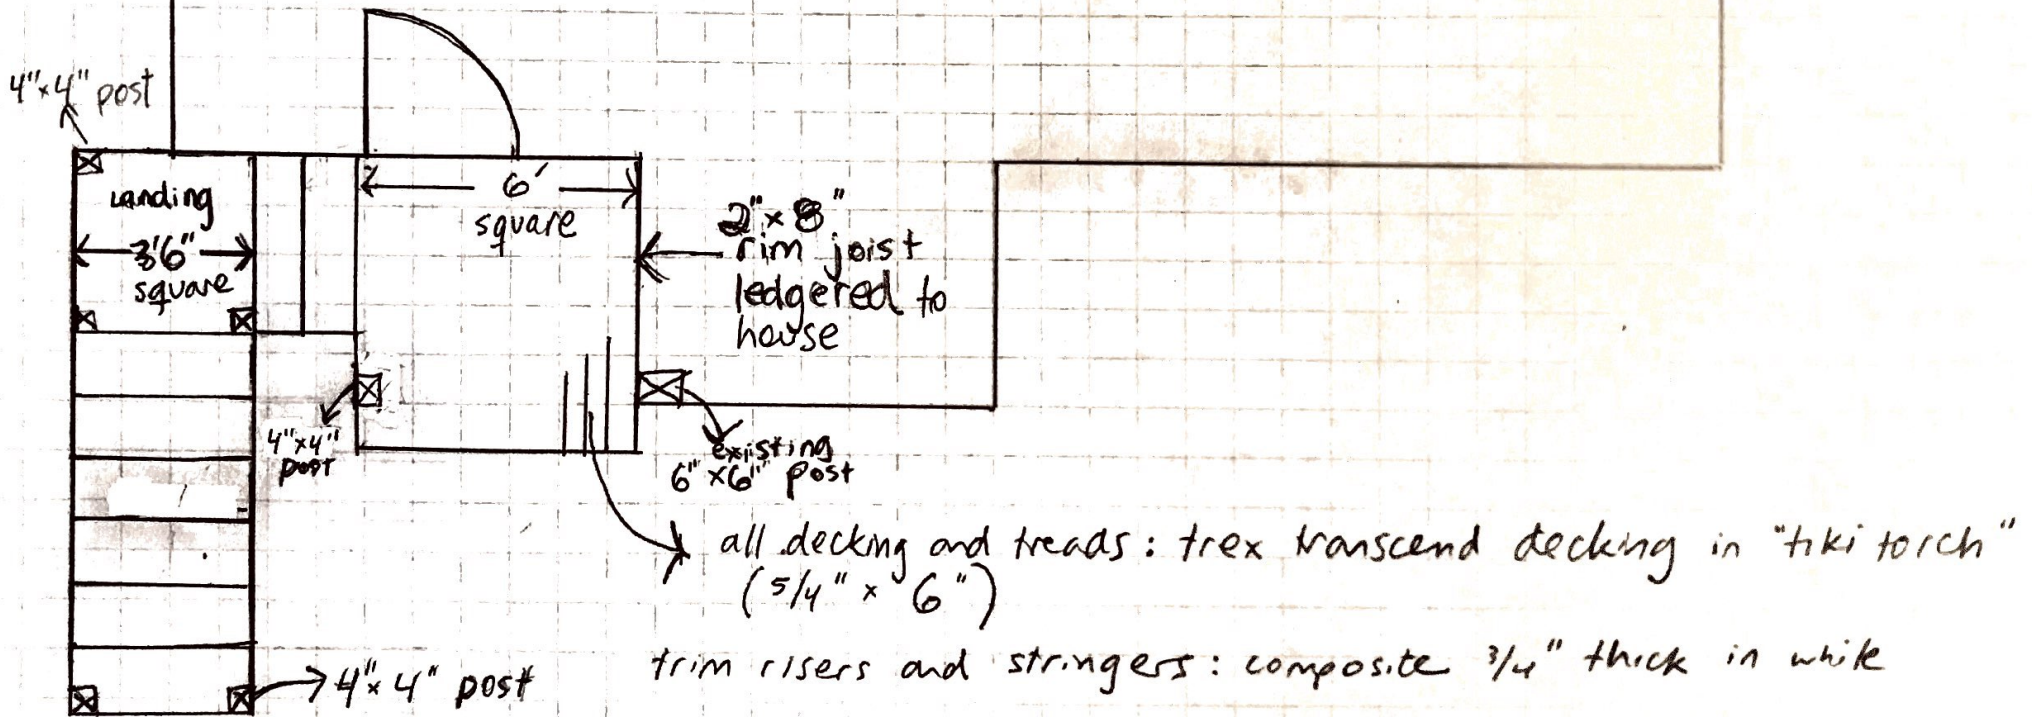 4"x4" post
Landing
3'6"
square
6'
square
2"x8"
rim joist
ledgered to
house
4"x4"
post
existing
6"x6" post
all decking and treads: trex transcend decking in "tiki torch"
(5/4" x 6")
trim risers and stringers: composite 3/4" thick in white
4"x4" post